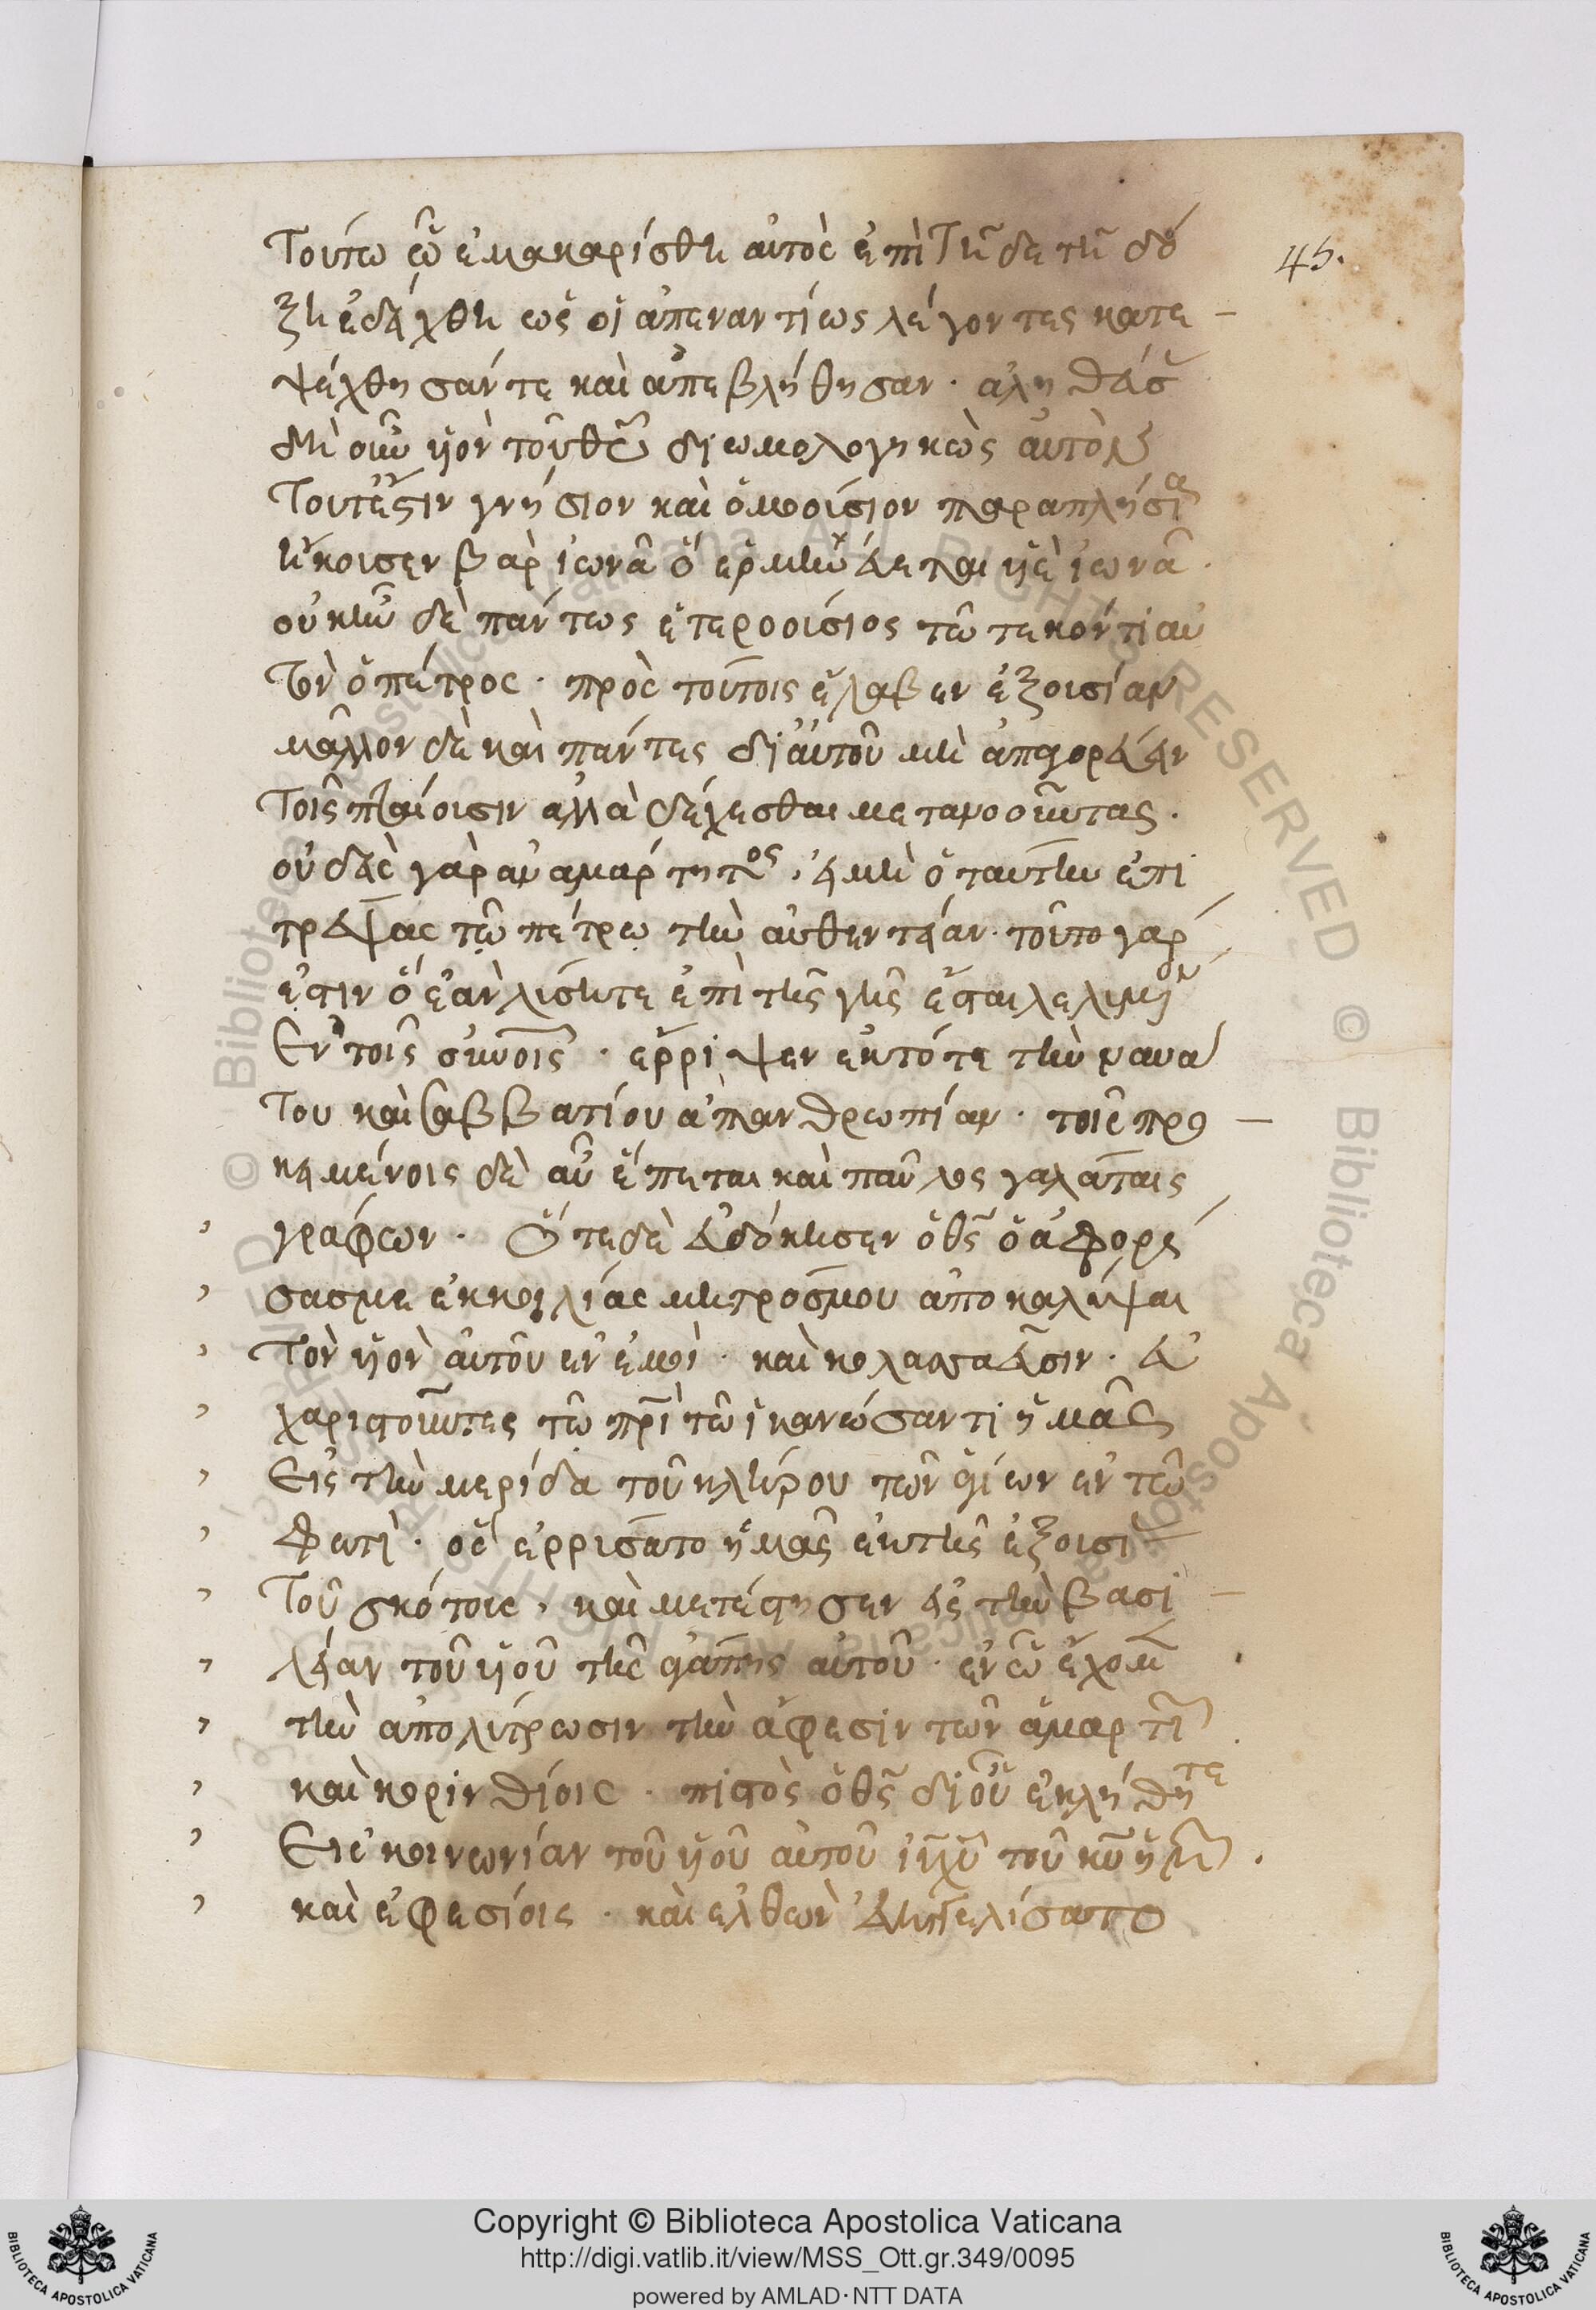 τούτω ᾧ ἐμακαρίσθη αὐτὸς ἐπὶ τῆδε τῆ δό
ξη ἐδείχθη ὡς οἱ ἀπεναντίως λέγοντες κατε
ψέχθησάν τε καὶ ἀπεβλήθησαν · ἀληθεῖς
δὴ οὖν υἱὸν τοῦ θεοῦ διωμολογηκὼς αὐτὸν
τουτέστιν γνήσιον καὶ ὁμοούσιον παραπλησί
ἤκουσεν βὰρ ἰωνᾶ ὃ ἑρμηνεύεται υἱὲ ἰωνᾶ ·
οὐκ ἦν δὲ πάντως ἑτεροούσιος τῶ τεκόντι αὐ
τὸν ὁ πέτρος · πρὸς τούτοις ἔλαβεν ἐξουσίαν
μᾶλλον δὲ καὶ πάντες δι αὐτοῦ μὴ ἀπαγορεύειν
τοῖς πταίουσιν ἀλλὰ δέχεσθαι μετανοοῦντας ·
οὐδεὶς γὰρ ἀναμάρτητος, εἰ μὴ ὁ ταύτην ἐπι
τρέψας τῶ πέτρω τὴν αὐθεντείαν · τοῦτο γάρ
ἐστιν ὃ ἐὰν λύσητε ἐπὶ τῆς γῆς ἔσται λελυμένον
ἐν τοῖς οὐνοῖς · ἔρριψεν ἔκτοτε τὴν ναυά
του καὶ σαββατίου ἀπανθρωπίαν · τοῖς προ
κειμένοις δὲ αὖ ἕπεται καὶ παῦλος γαλάταις
γράφων · ὅτε δὲ εὐδόκησεν ὁ θς ὁ ἀφορί
σας με ἐκ κοιλίας μητρός μου ἀποκαλύψαι
τὸν υἱὸν αὐτοῦ ἐν ἐμοὶ · καὶ κολασσαεῦσιν · εὐ
χαριστοῦντες τῶ πρὶ τῶ ἱκανώσαντι ἡμᾶς
εἰς τὴν μερίδα τοῦ κλήρου τῶν ἁγίων ἐν τῶ
φωτὶ · ὃς ἐρρύσατο ἡμᾶς ἐκ τῆς ἐξουσίας
τοῦ σκότους, καὶ μετέστησεν εἰς τὴν βασι
λείαν τοῦ υἱοῦ τῆς ἀγάπης αὐτοῦ · ἐν ᾧ ἔχομεν
τὴν ἀπολύτρωσιν τὴν ἄφεσιν τῶν ἁμαρτιῶν
καὶ κορινθίοις · πιστὸς ὁ θς δι οὗ ἐκλήθητε
εἰς κοινωνίαν τοῦ υἱοῦ αὐτοῦ ιυ χυ τοῦ κυ ἡμῶν ·
καὶ ἐφεσίοις · καὶ ἐλθὼν εὐηγγελίσατο
45.
Copyright © Biblioteca Apostolica Vaticana
http://digi.vatlib.it/view/MSS_Ott.gr.349/0095
powered by AMLAD·NTT DATA
BIBLIOTECA APOSTOLICA VATICANA
BIBLIOTECA APOSTOLICA VATICANA